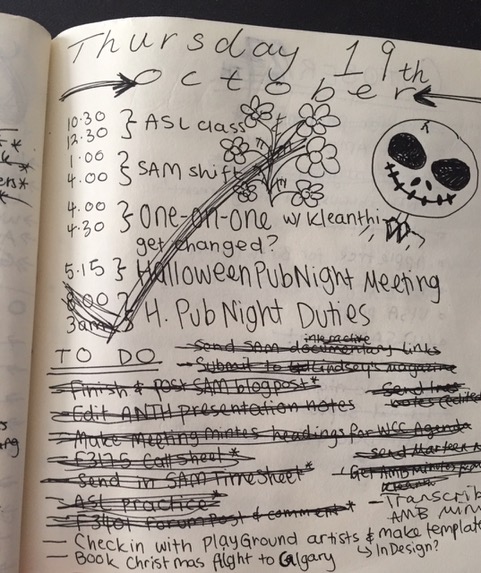 Thursday 19th
October
10:30
12:30 } ASL class
1:00
4:00 } SAM shift
4:00
4:30 } One-on-one w/ Kleanthi
get changed?
5:15 } Halloween Pub Night Meeting
8:00
3am } H. Pub Night Duties
TO DO
- Send SAM documentary links
interactive
- Submit to Lindsey's magazine
- Finish & post SAM blog post*
- Send
notes (edited
- Edit ANTH presentation notes
- Make Meeting mintes headings for WCC Agenda
- F3175 Call sheet*
- Send
- Send in SAM Timesheet*
- Get AMB Minutes from
Kleanthi
- ASL practice*
- Transcrib
AMB minu
- F3401 forum post & comment*
- Check in with PlayGround artists & make template
↳ InDesign?
- Book Christmas flight to Calgary